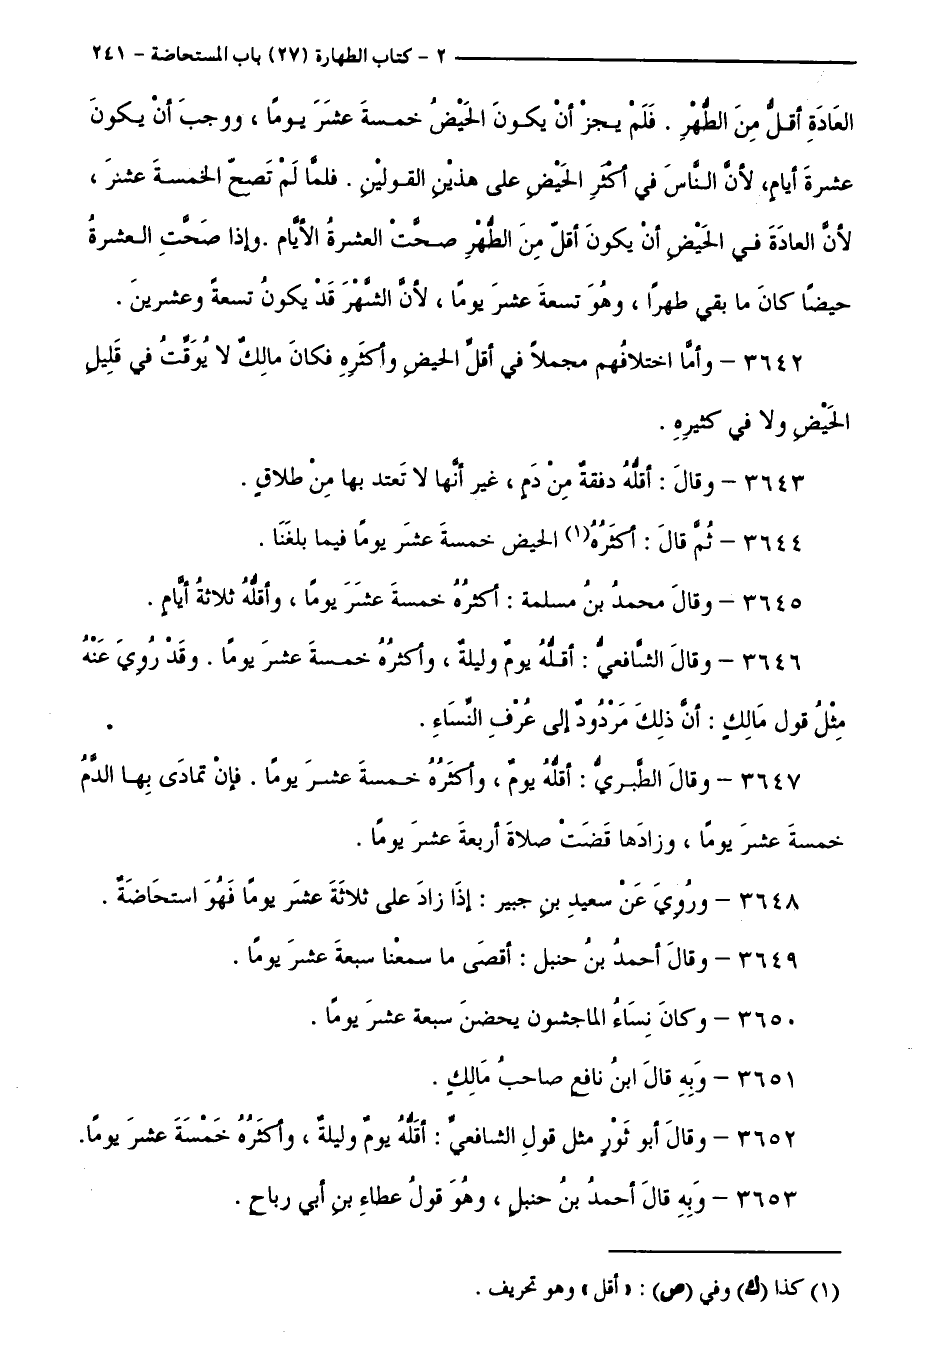 ٢ - كتاب الطهارة (٢٧) باب المستحاضة - ٢٤١
العَادَةِ أقلُّ مِنَ الطُّهْرِ . فَلَمْ يجزْ أنْ يكونَ الحَيْضُ خمسةَ عشَرَ يومًا ، ووجبَ أنْ يكونَ
عشرةَ أيامٍ، لأنَّ النَّاسَ في أكْثَرِ الحَيْضِ على هذيْنِ القولينِ . فلمَّا لَمْ تَصحّ الخمسةَ عشَرَ ،
لأنَّ العادَةَ في الحَيْضِ أنْ يكونَ أقلّ مِنَ الطُّهْرِ صحَّتْ العشرةُ الأيَّام .وإذا صَحَّتِ العشرةُ
حيضًا كانَ ما بقي طهرًا ، وهُوَ تسعةَ عشرَ يومًا ، لأنَّ الشَّهْرَ قَدْ يكونُ تسعةً وعشرينَ .
٣٦٤٢ - وأمَّا اختلافُهم مجملاً في أقلِّ الحيضِ وأكثَرِهِ فكانَ مالكٌ لا يُوَقِّتُ في قَلِيلِ
الحَيْضِ ولا في كثيرِهِ .
٣٦٤٣ - وقالَ : أقلُّهُ دفقةٌ مِنْ دَمٍ ، غير أنَّها لا تَعتد بها مِنْ طلاقٍ .
٣٦٤٤ - ثُمَّ قالَ : أكثَرُهُ(١) الحيض خمسةَ عشَرَ يومًا فيما بلغَنَا .
٣٦٤٥ - وقالَ محمدُ بنُ مسلمة : أكثرُهُ خمسةَ عشَرَ يومًا ، وأقلُّهُ ثلاثةُ أيَّامٍ .
٣٦٤٦ - وقالَ الشَّافعيُّ : أقلُّهُ يومٌ وليلةٌ ، وأكثرُهُ خمسةَ عشرَ يومًا . وقَدْ رُوِيَ عَنْهُ
مِثْلُ قول مَالِكٍ : أنَّ ذلِكَ مَرْدُودٌ إلى عُرْفِ النِّسَاءِ .
٣٦٤٧ - وقالَ الطَّبريُّ : أقلُّهُ يومٌ ، وأكثَرُهُ خمسةَ عشرَ يومًا . فإنْ تمادَى بِها الدَّمُ
خمسةَ عشرَ يومًا ، وزادَها قَضَتْ صلاةَ أربعةَ عشرَ يومًا .
٣٦٤٨ - ورُوِيَ عَنْ سعيدِ بنِ جبير : إذَا زادَ على ثلاثَةَ عشَرَ يومًا فَهُوَ استحَاضَةٌ .
٣٦٤٩ - وقالَ أحمدُ بنُ حنبل : أقصَى ما سمعْنا سبعةَ عشرَ يومًا .
٣٦٥٠ - وكانَ نِسَاءُ الماجشون يحضنَ سبعة عشرَ يومًا .
٣٦٥١ - وَبِهِ قالَ ابنُ نافع صاحبُ مَالِكٍ .
٣٦٥٢ - وقالَ أبو ثَوْرٍ مثل قولِ الشافعيِّ : أقَلُّهُ يومٌ وليلةٌ ، وأكثَرُهُ خَمْسَةَ عشرَ يومًا.
٣٦٥٣ - وَبِهِ قالَ أحمدُ بنُ حنبلٍ ، وهُوَ قولُ عطاءِ بنِ أبي رباحٍ .
(١) كذا (ك) وفي (ص) : « أقل » وهو تحريف .